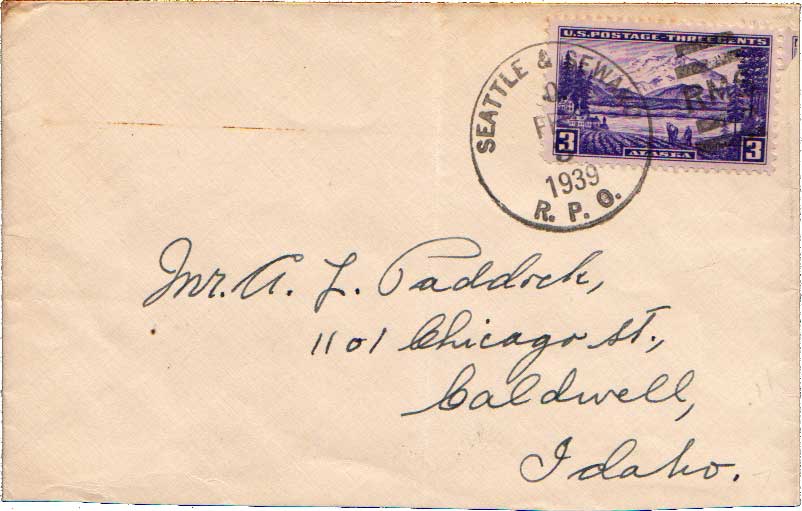 U.S. POSTAGE - THREE CENTS
3 ALASKA 3
SEATTLE & SEWA
1939
R. P. O.
RMS
Mr. A. L. Paddock,
1101 Chicago St.,
Caldwell,
Idaho.